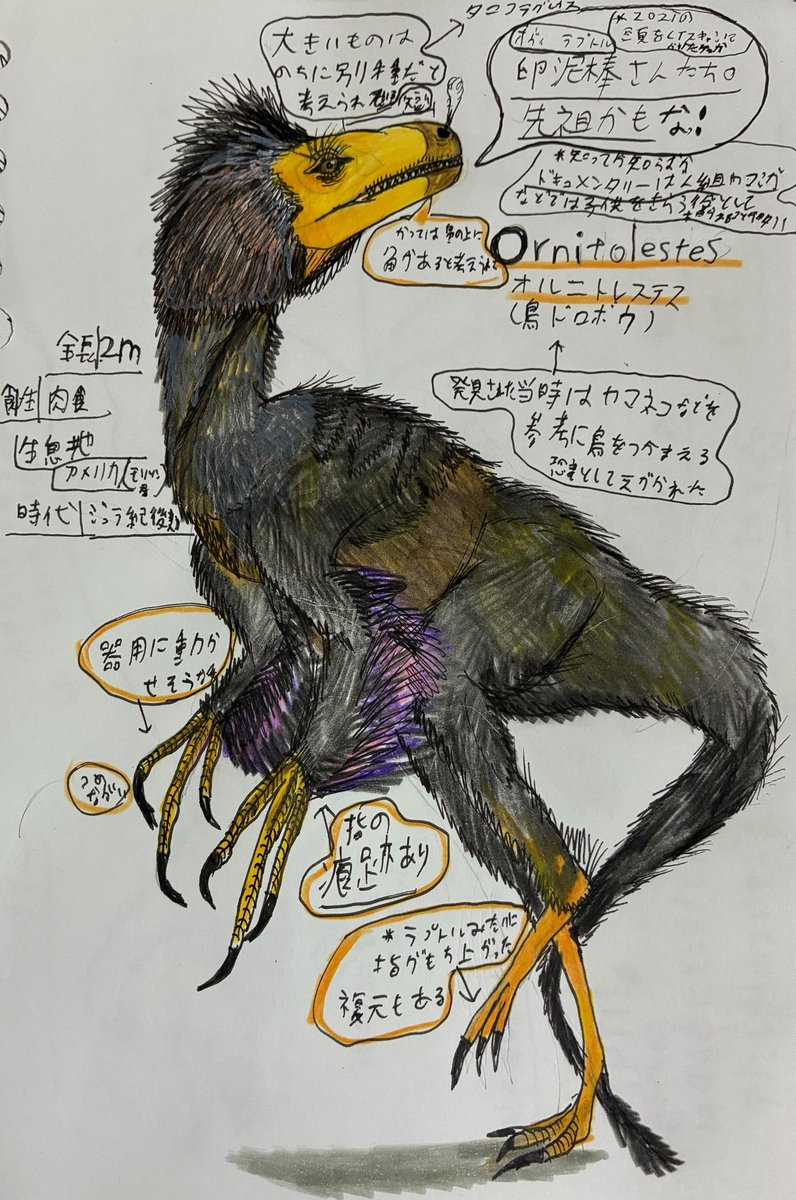 タニコラグレウス
大きいものは
のちに別種だと
考えられ
*2021の
オヴィラプトル
卵泥棒さんたち。
先祖かもなっ!
*知ってか知らぬか
ドキュメンタリー
などでは子供をさらう役として
かつては鼻の上に
角があると考えられて
Ornitolestes
オルニトレステス
(鳥ドロボウ)
全長 2m
食性 肉食
生息地
アメリカ(モリソン層)
時代 ジュラ紀後期
発見された当時は カマネコなどを
参考に鳥をつかまえる
恐竜としてえがかれた
器用に動か
せそうな
つめ
ながい
指の
痕跡あり
*ラプトルみたいに
指がもち上がった
復元もある